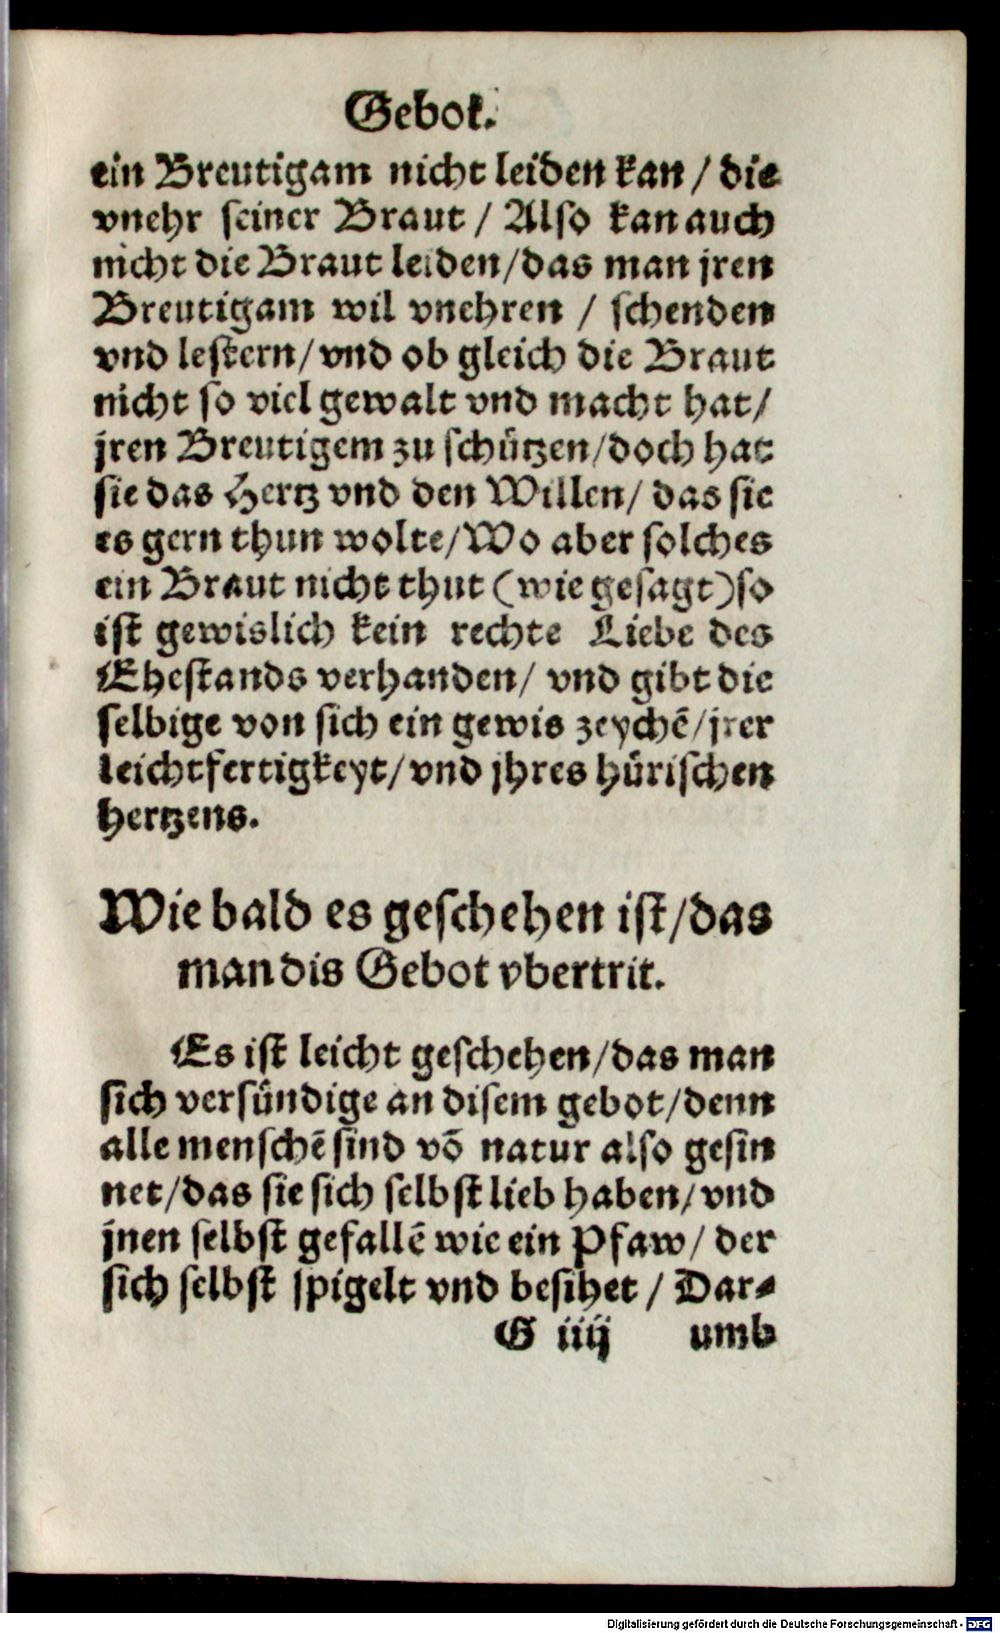 Gebot.
ein Breutigam nicht leiden kan / die
vnehr seiner Braut / Also kan auch
nicht die Braut leiden/das man jren
Breutigam wil vnehren / schenden
vnd lestern/vnd ob gleich die Braut
nicht so viel gewalt vnd macht hat/
jren Breutigem zu schützen/doch hat
sie das Hertz vnd den Willen/ das sie
es gern thun wolte/Wo aber solches
ein Braut nicht thut (wie gesagt) so
ist gewislich kein rechte Liebe des
Ehestands verhanden/ vnd gibt die
selbige von sich ein gewis zeychē/jrer
leichtfertigkeyt/vnd jhres hürischen
hertzens.
Wie bald es geschehen ist/das
man dis Gebot vbertrit.
Es ist leicht geschehen/das man
sich versündige an disem gebot/denn
alle menschē sind vō natur also gesin
net/das sie sich selbst lieb haben/vnd
jnen selbst gefallē wie ein Pfaw/ der
sich selbst spigelt vnd besihet / Dar-
G iiij umb
Digitalisierung gefördert durch die Deutsche Forschungsgemeinschaft - DFG